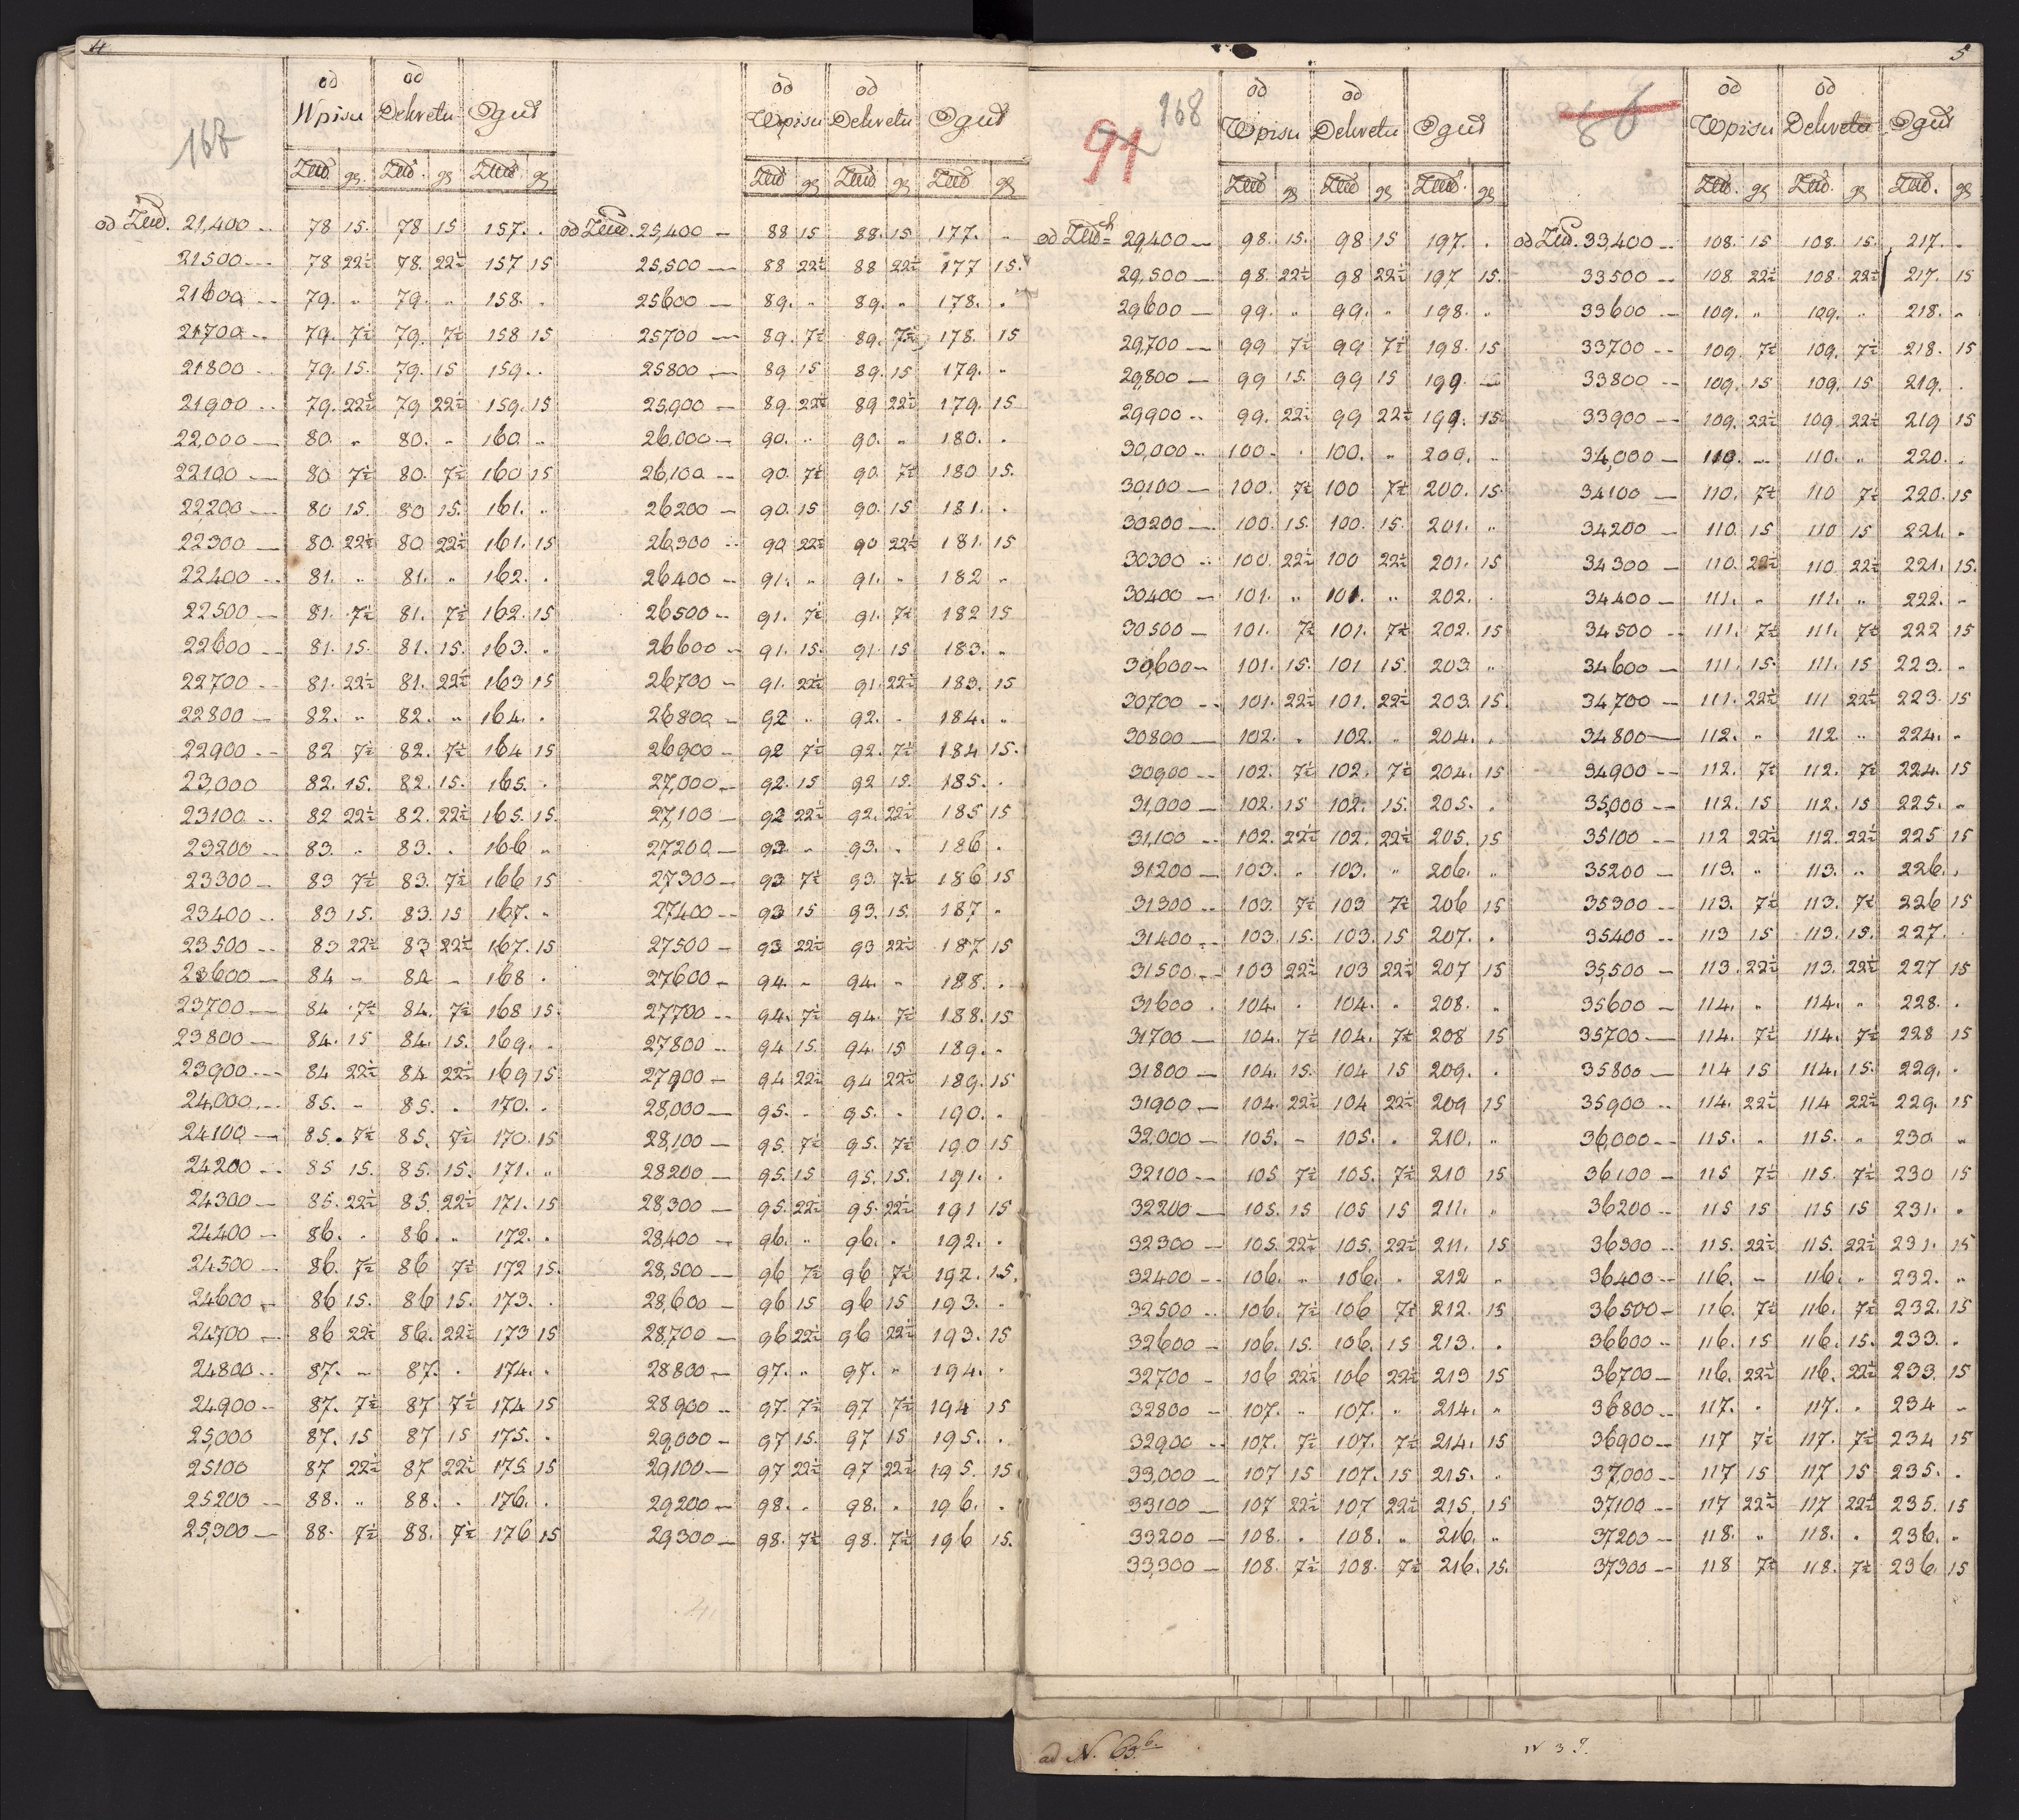 4
167
od od
Wpisu Dekretu Oguł
gr gr gr
od 21,400 78 15. 78 15 157.
21500 78 22½ 78. 22½ 157 15
21600 79. „ 79. „ 158.
21700 79. 7½ 79. 7½ 158 15
21800 79. 15. 79. 15 159.
21900 79. 22½ 79 22½ 159. 15
22,000 80 „ 80. „ 160 „
22100 80 7½ 80. 7½ 160 15
22,200 80 15. 80 15. 161. „
22300 80. 22½ 80 22½ 161. 15
22400 81. „ 81. „ 162.
22500 81. 7½ 81. 7½ 162. 15
22600 81. 15. 81. 15. 163. „
22700 81. 22½ 81. 22½ 163 15
22800 82. „ 82. „ 164.
22900 82 7½ 82. 7½ 164 15
23,000 82. 15. 82. 15. 165.
23100 82 22½ 82. 22½ 165. 15.
23200 83. „ 83. 166 „
23300 83 7½ 83. 7½ 166 15
23400 83 15. 83. 15 167. „
23500 83 22½ 83 22½ 167. 15
23600 84 „ 84 „ 168
23,700 84 7½ 84. 7½ 168 15.
23800 84. 15 84. 15. 169. „
23900 84 22½ 84 22½ 169 15.
24,000 85. „ 85. „ 170.
24100 85. 7½ 85. 7½ 170. 15
24200 85 15. 85. 15. 171. „
24300 85. 22½ 85. 22½ 171. 15
24400 86. 86. „ 172.
24500 86. 7½ 86 7½ 172 15.
24600 86 15. 86 15. 173.
24700 86 22½ 86. 22½ 173 15
24800 87. „ 87. 174.
24900 87. 7½ 87 7½ 174 15
25,000 87. 15 87 15 175.
25100 87 22½ 87 22½ 175 15
25200 88. „ 88. 176.
25,300 88. 7½ 88. 7½ 176 15
od od
Wpisu Dekretu Oguł
gr gr gr
od 25,400 88 15 88. 15 177. „
25,500 88 22½ 88 22½ 177 15.
25600 89. „ 89. „ 178. „
25700 89. 7½ 89. 7½ 178. 15
25800 89 15 89. 15 179. „
25,900 89. 22½ 89 22½ 179. 15
26,000 90. „ 90. „ 180.
26,100 90. 7½ 90. 7½ 180 15.
26200 90. 15 90. 15 181.
26,300 90 22½ 90 22½ 181. 15
26400 91. „ 91. „ 182 „
26500 91. 7½ 91. 7½ 182 15
26600 91. 15. 91. 15 183. „
26700 91. 22½ 91. 22½ 183. 15
26800 92 „ 92. „ 184. „
26900 92 7½ 92. 7½ 184 15.
27,000 92. 15 92 15. 185.
27,100 92 22½ 92. 22½ 185 15
27200 93 „ 93. „ 186
27300 93 7½ 93. 7½ 186 15
27400 93 15 93. 15. 187 „
27500 93 22½ 93 22½ 187 15
27600 94. „ 94. „ 188.
27700 94. 7½ 94. 7½ 188. 15
27800 94 15. 94. 15 189. „
27900 94 22½ 94 22½ 189. 15
28,000 95. „ 95. „ 190. „
28,100 95. 7½ 95. 7½ 190 15
28200 95. 15 95. 15. 191.
28,300 95. 22½ 95. 22½ 191 15
28,400 96. „ 96. 192.
28,500 96 7½ 96 7½ 192. 15.
28,600 96 15 96 15 193.
28,700 96 22½ 96 22½ 193. 15
28800 97. „ 97. „ 194.
28900 97. 7½ 97 7½ 194 15
29,000 97 15. 97 15 195.
29100 97 22½ 97 22½ 195. 15
29200 98. 98. „ 196.
29300 98. 7½ 98. 7½ 196 15.
168
91
od od
Wpisu Dekretu Oguł
gr gr gr
od 29,400 98. 15. 98 15 197.
29,500 98. 22½ 98 22½ 197 15.
29600 99. „ 99. „ 198. „
29,700 99 7½ 99 7½ 198. 15
29,800 99 15. 99 15 199. „
29900 99. 22½ 99 22½ 199. 15
30,000 100 100. „ 200. „
30,100 100. 7½ 100 7½ 200. 15.
30200 100. 15. 100. 15. 201. „
30300 100 22½ 100 22½ 201. 15
30400 101. „ 101. „ 202.
30500 101. 7½ 101. 7½ 202. 15
30,600 101. 15. 101 15. 203 „
30700 101. 22½ 101. 22½ 203. 15.
30800 102. „ 102. „ 204.
30,900 102. 7½ 102. 7½ 204. 15
31,000 102. 15 102. 15. 205.
31,100 102. 22½ 102. 22½ 205. 15
31200 103. „ 103. „ 206. „
31300 103. 7½ 103 7½ 206 15
31400 103. 15. 103. 15 207.
31500 103 22½ 103 22½ 207 15
31600 104. 104. „ 208. „
31700 104. 7½ 104. 7½ 208 15
31800 104. 15. 104 15 209.
31900 104. 22½ 104 22½ 209 15
32,000 105. „ 105. 210. „
32100 105 7½ 105. 7½ 210 15
32200 105. 15 105 15 211. „
32300 105. 22½ 105. 22½ 211. 15
32400 106. „ 106. „ 212 „
32500 106. 7½ 106 7½ 212. 15
32600 106. 15. 106. 15 213.
32700 106 22½ 106 22½ 213 15
32800 107. „ 107. „ 214. „
32900 107. 7½ 107. 7½ 214. 15
33,000 107 15 107. 15 215. „
33100 107 22½ 107 22½ 215. 15
33200 108. 108. „ 216. „
33,300 108. 7½ 108. 7½ 216. 15.
5
od od
Wpisu Dekretu Oguł
gr gr gr
od 33,400 108. 15 108. 15. 217. „
33500 108. 22½ 108. 22½ 217. 15
33600 109. „ 109. „ 218. „
33700 109. 7½ 109. 7½ 218. 15
33800 109. 15 109. 15 219.
33900 109. 22½ 109 22½ 219 15
34,000 110. „ 110. „ 220.
34100 110. 7½ 110 7½ 220. 15
34200 110. 15 110 15 221. „
34300 110. 22½ 110 22½ 221. 15.
34400 111. „ 111. „ 222. „
34500 111. 7½ 111. 7½ 222 15
34600 111. 15. 111. 15 223. „
34700 111. 22½ 111 22½ 223. 15
34800 112. „ 112. „ 224. „
34900 112. 7½ 112. 7½ 224. 15
35,000 112. 15 112. 15 225. „
35100 112 22½ 112. 22½ 225 15
35200 113. „ 113. „ 226.
35300 113. 7½ 113. 7½ 226 15
35400 113 15 113. 15. 227.
35,500 113. 22½ 113. 22½ 227 15
35600 114. „ 114. „ 228.
35700 114. 7½ 114. 7½ 228 15
35800 114 15 114. 15. 229.
35900 114. 22½ 114 22½ 229. 15
36,000 115. „ 115. „ 230 „
36100 115 7½ 115. 7½ 230 15
36200 115 15 115 15 231. „
36300 115. 22½ 115. 22½ 231. 15
36400 116. „ 116. „ 232. „
36500 116. 7½ 116. 7½ 232. 15
36600 116. 15 116. 15. 233.
36700 116. 22½ 116. 22½ 233. 15
36800 117. 117. „ 234 „
36900 117 7½ 117. 7½ 234 15
37,000 117 15 117 15 235.
37100 117 22½ 117 22½ 235. 15
37200 118. „ 118. 236. „
37300 118 7½ 118. 7½ 236. 15